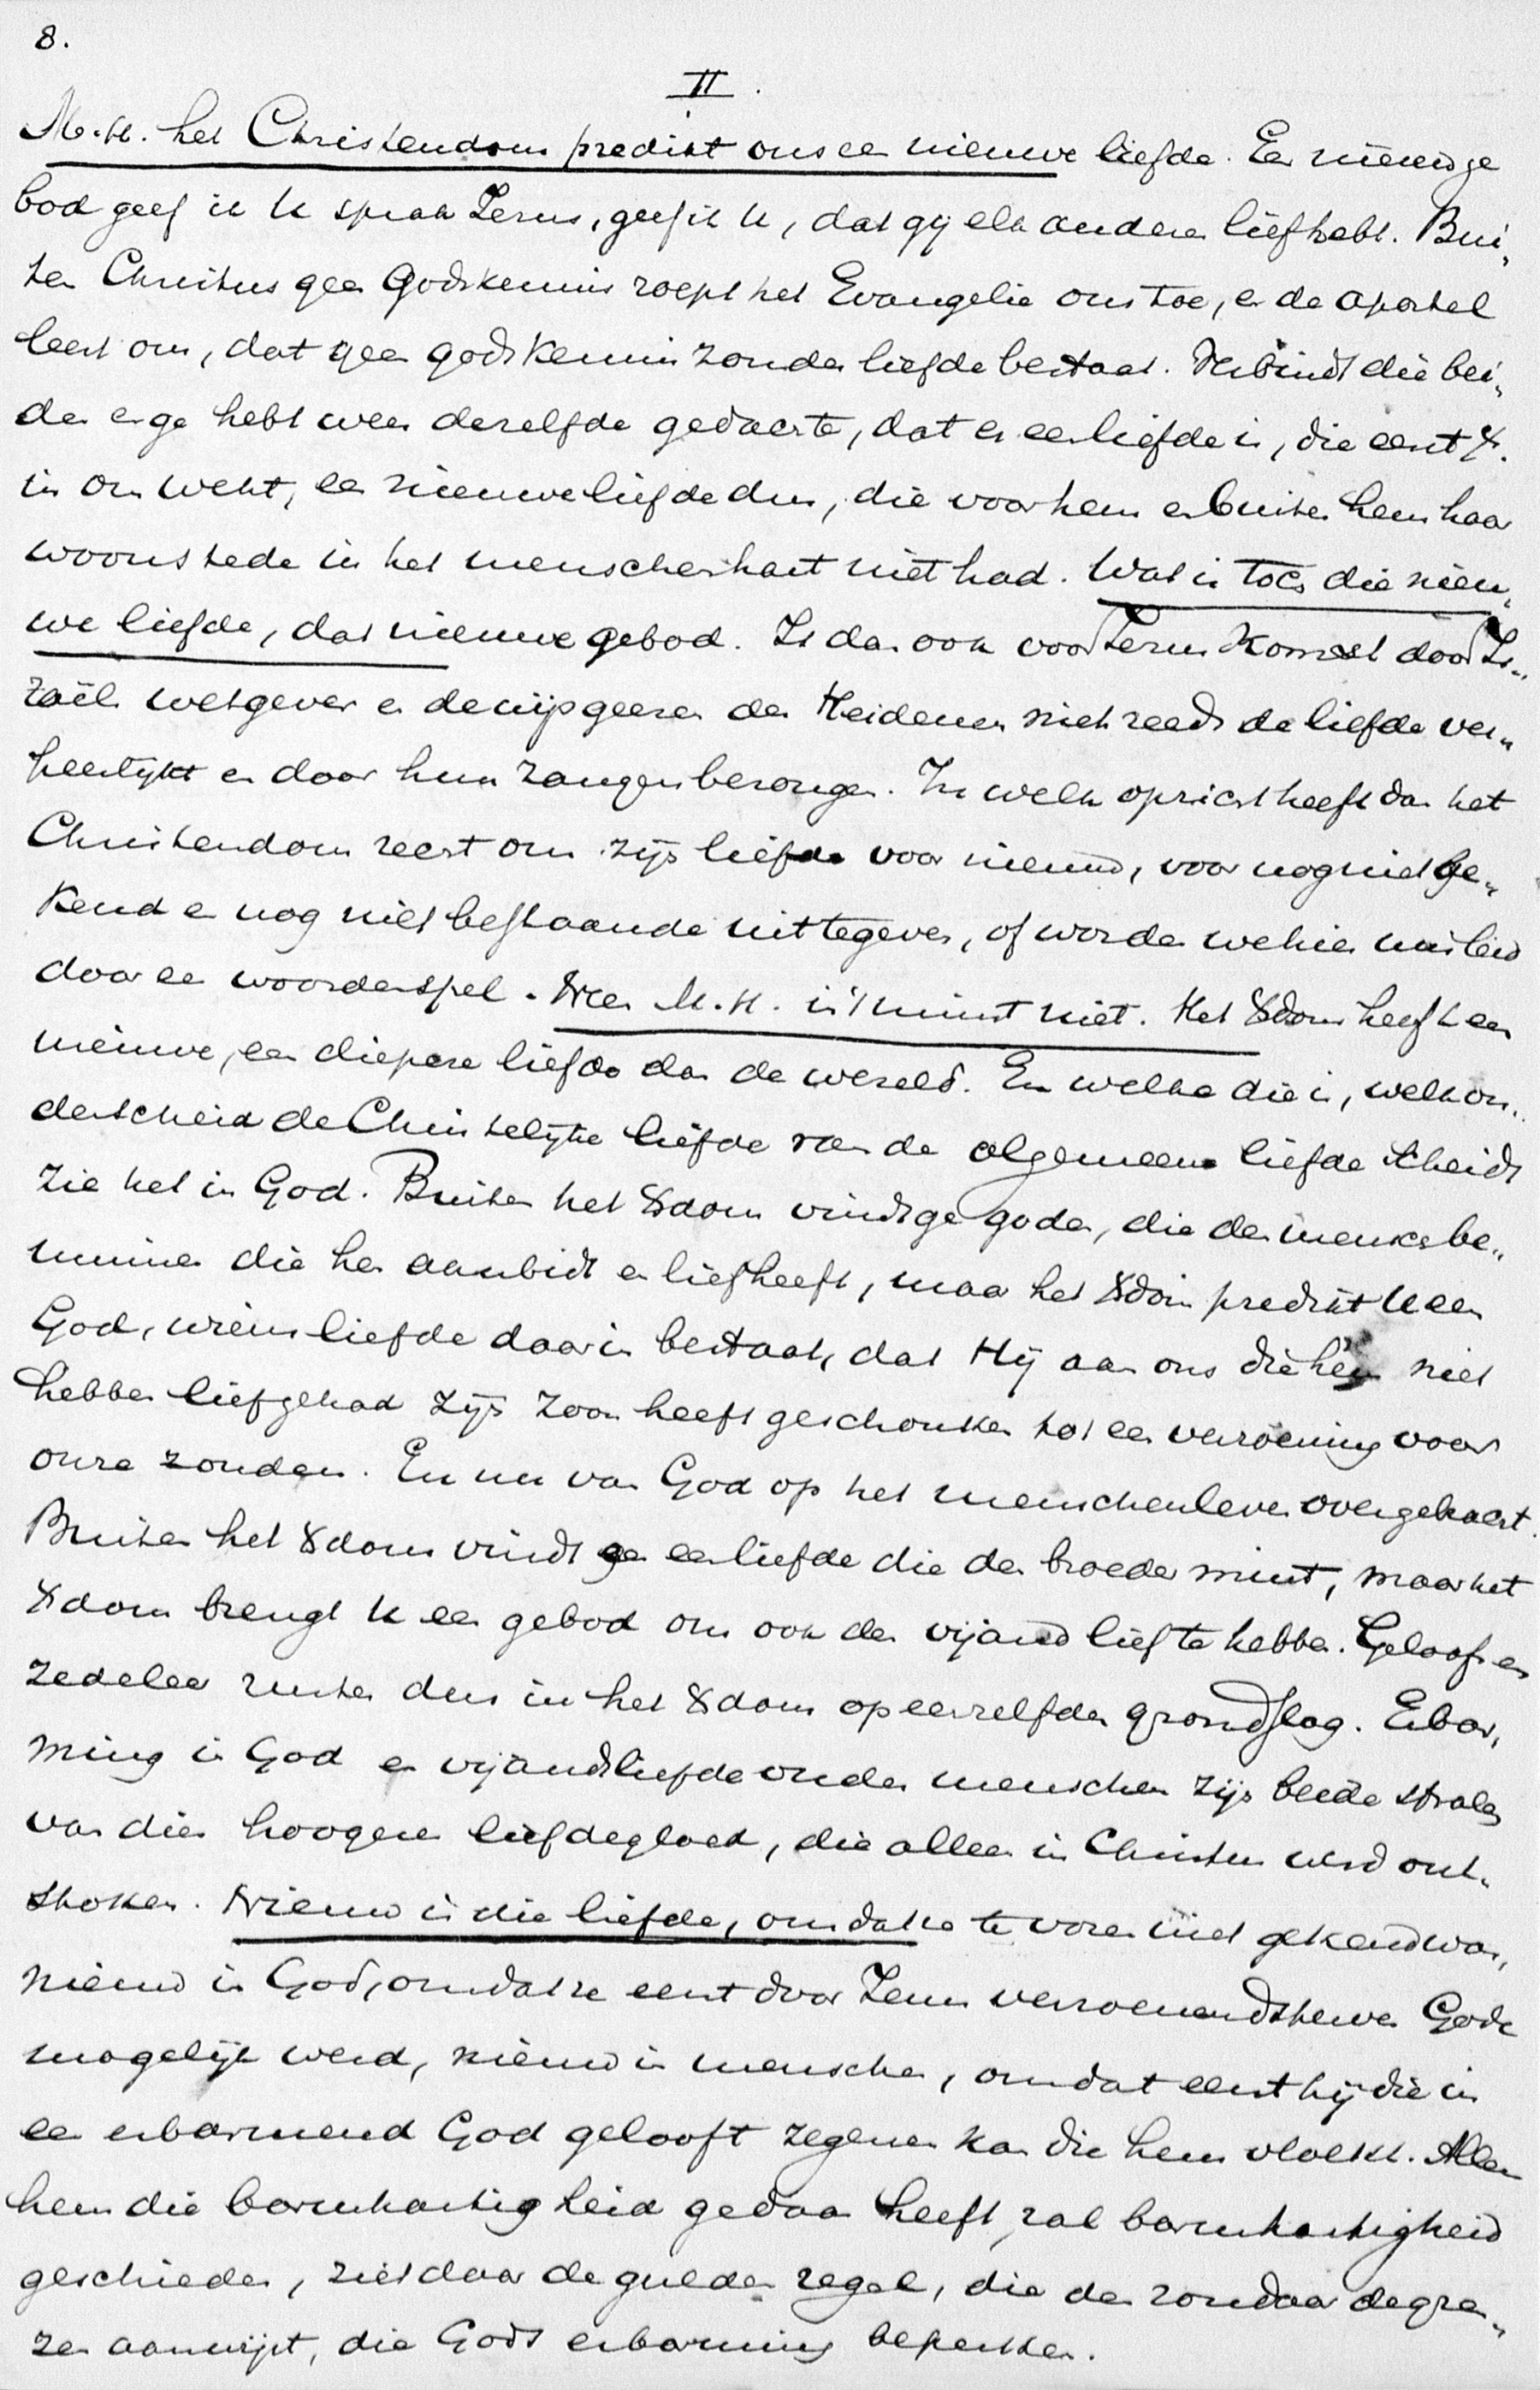 8.
II.
M.H. het Christendom predikt ons een nieuwe liefde. Een nieuw ge„
bod geef ik U sprak Jezus, geef ik U, dat gij elkanderen liefhebt. Bui„
ten Christus geen Godskennis roept het Evangelie ons toe, en de apostel
leert ons, dat geen godskennis zonder liefde bestaat. Verbindt die bei„
den en ge hebt weer dezelfde gedachte, dat er een liefde is, die eerst X.
in ons wekt, een nieuwe liefde dus, die voor hem en buiten hem haar
woonstede in het menschenhart niet had. Wat is toch die nieu„
we liefde, dat nieuwe gebod. Is dan ook voor Jezus komst door Is„
raëls wetgever en de wijsgeeren der Heidenen niet reeds de liefde ver„
heerlijkt en door hun zangen bezongen. In welk opzicht heeft dan het
Christendom recht om zijn liefde voor nieuw, voor nog niet ge„
kend en nog niet bestaande uit te geven, of worden we hier misleid
door een woordenspel. Neen M.H. in 't minst niet. Het Xdom heeft een
nieuwe, een diepere liefde dan de wereld. En welke die is, welk on„
derscheid de Christelijke liefde van de algemeene liefde scheidt
zie het in God. Buiten het Xdom vindt ge goden, die den mensch be„
minnen die hen aanbidt en liefheeft, maar het Xdom predikt U een
God, wiens liefde daarin bestaat, dat Hij aan ons die hem niet
hebben liefgehad zijn Zoon heeft geschonken tot een verzoening voor
onze zonden. En nu van God op het menschenleven overgebracht.
Buiten het Xdom vindt ge een liefde die den broeder mint, maar het
Xdom brengt U een gebod om ook den vijand lief te hebben. Geloof en
zedeleer rusten dus in het Xdom op eenzelfden grondslag. Erbar„
ming in God en vijandsliefde onder menschen zijn beide stralen
van dien hoogeren liefdegloed, die alleen in Christus werd ont„
stoken. Nieuw is die liefde, omdat ze te voren niet gekend was,
nieuw in God, omdat ze eerst door Jezus verzoenend sterven Gode
mogelijk werd, nieuw in menschen, omdat eerst hij die in
een erbarmend God gelooft zegenen kan die hem vloekt. Alleen
hem die barmhartigheid gedaan heeft, zal barmhartigheid
geschieden, ziet daar de gulden regel, die den zondaar de gren„
zen aanwijst, die Gods erbarming beperken.